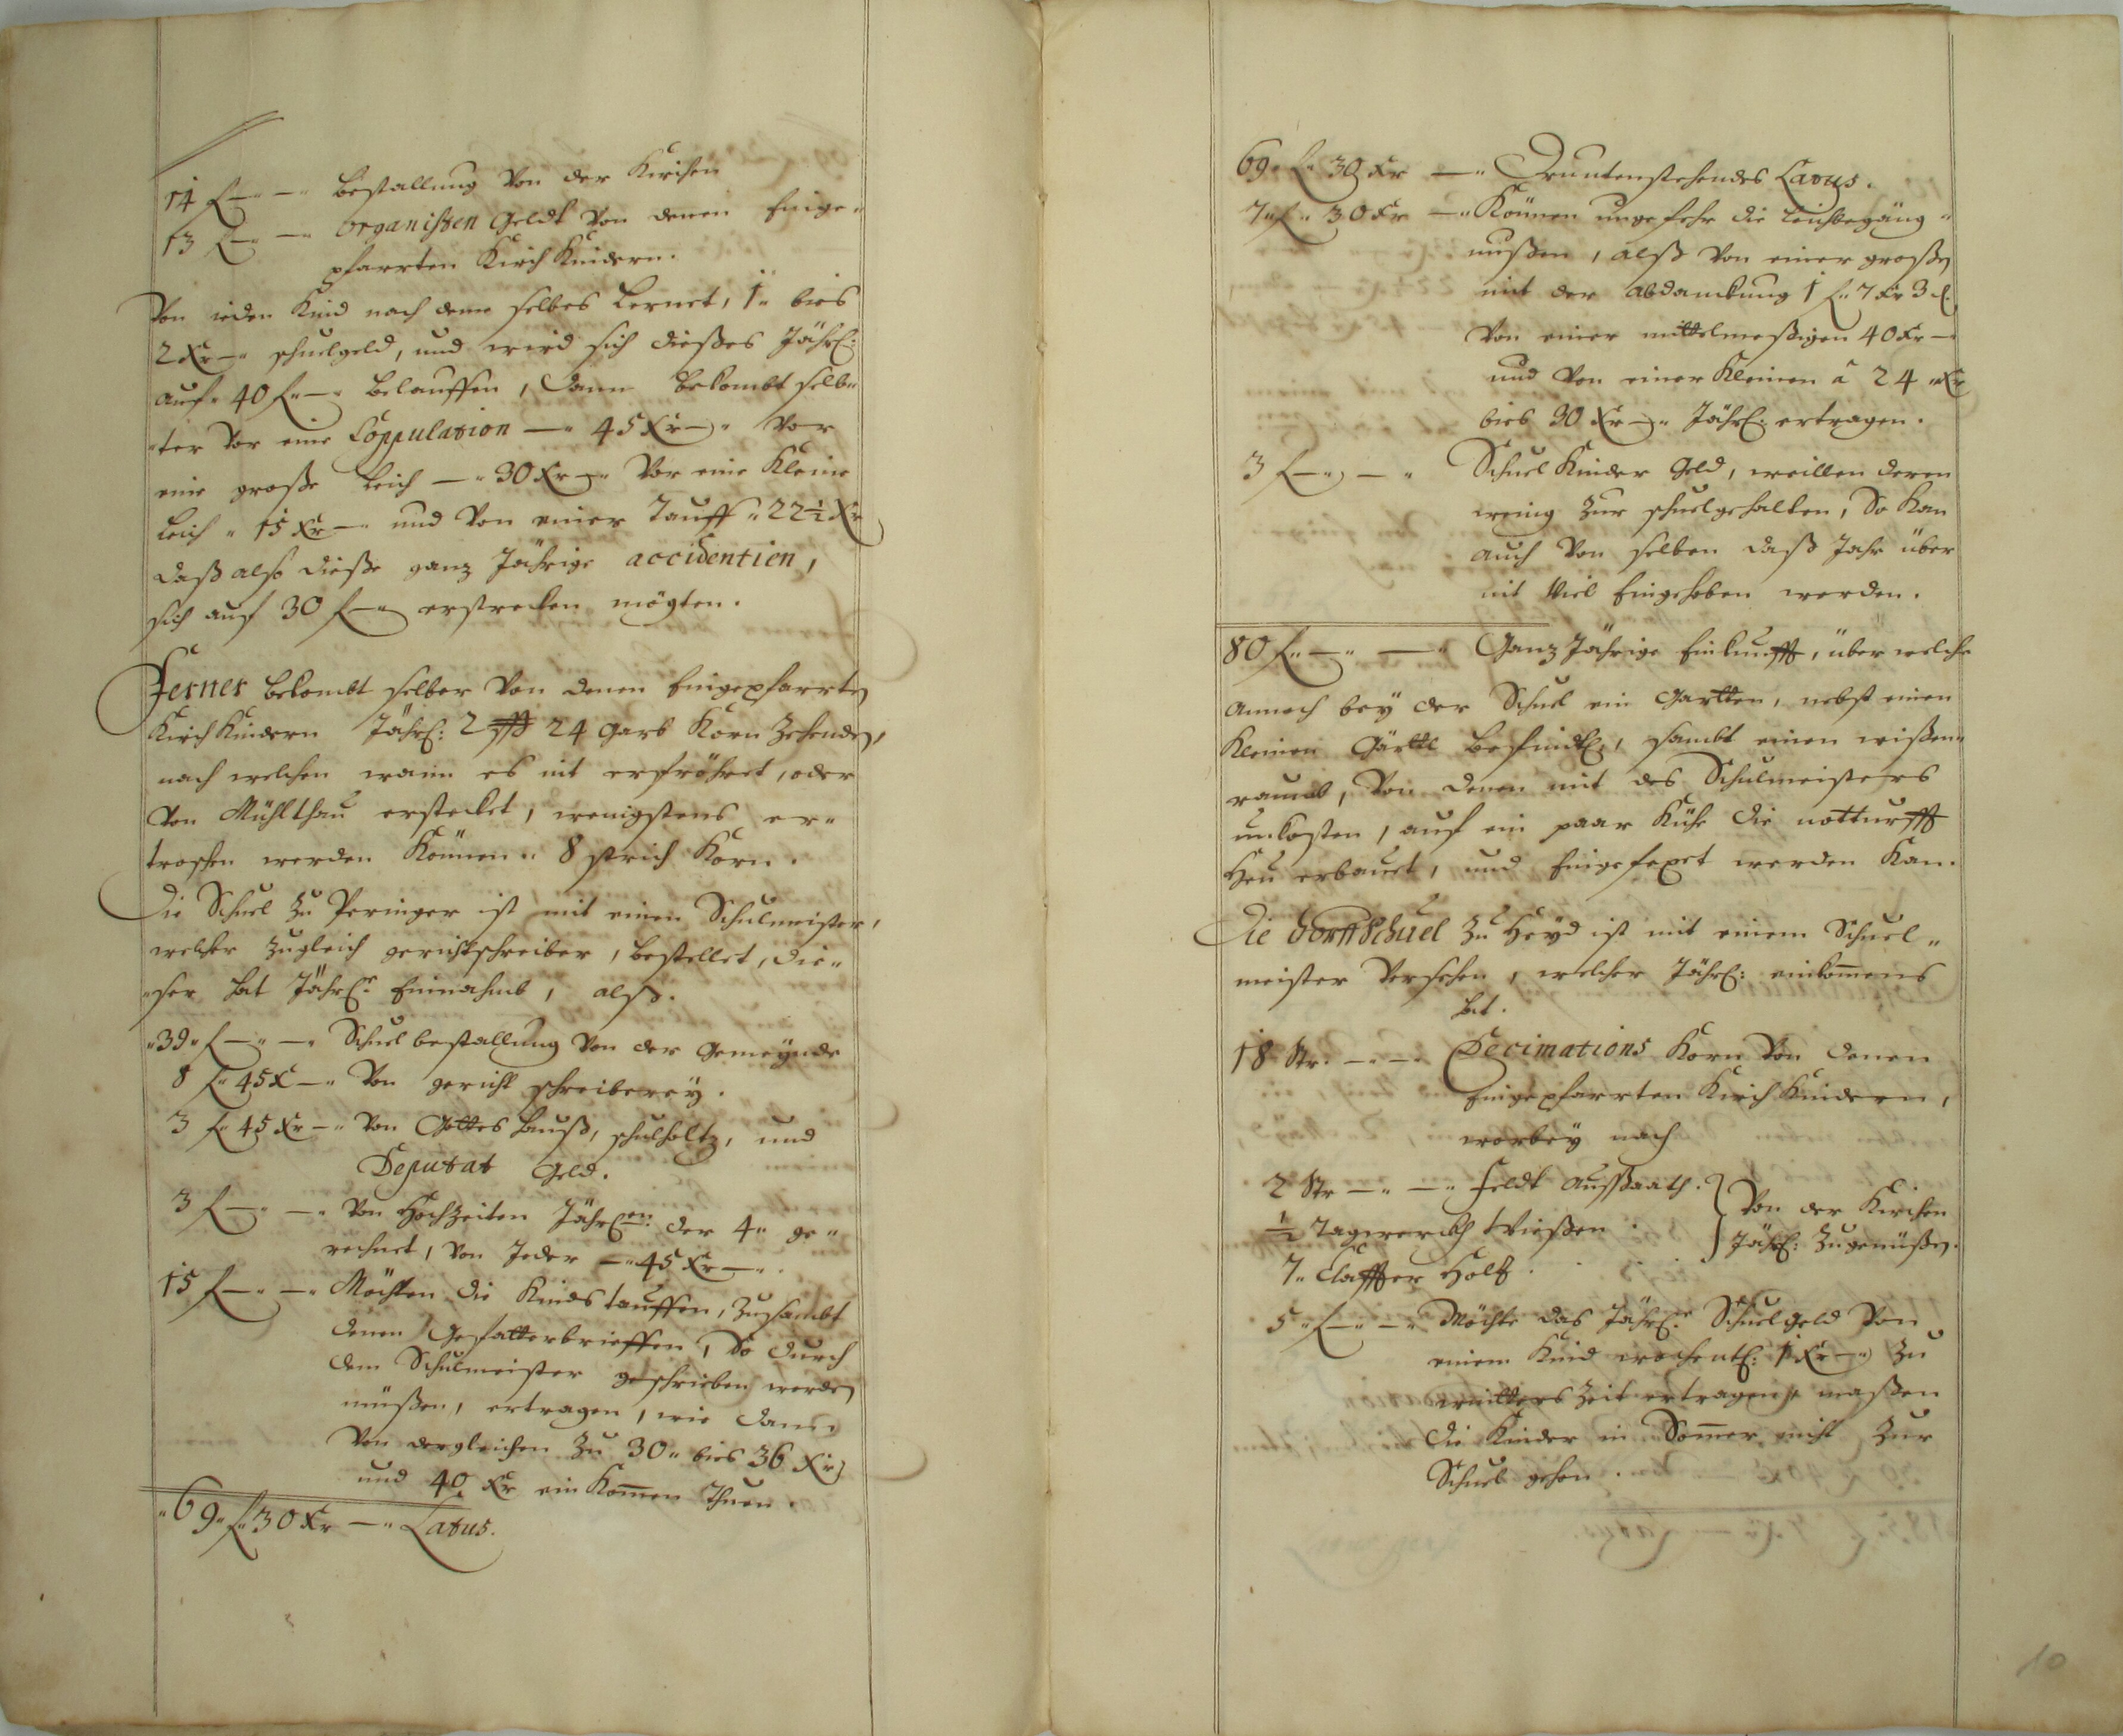 14 f —„ —„ Bestallung Von der Kirchen
13 f —„ —„ Organisten Geldt Von denen Einge„
pfarrten Kirch Kindern.
Von ieden Kind nach deme selbes Lernet, 1„ bies
2 Xr —„ schuelgeld, und wird sich dießes Jährl:
auf„ 40 f„ —„ belauffen, dann bekombt selb„
„ter Vor eine Coppulation —„ 45 Xr —„ Vor
eine große Leich —„ 30 Xr —„ Vor eine Kleine
Leich „ 15 Xr —„ und Von einer Tauff „ 22½ Xr
daß also dieße ganz Jährige accidentien,
sich auf 30 f —„ erstrecken mögten.
Ferner bekombt selber Von denen Eingepfarrten
Kirch Kindern Jährl: 2 ß 24 Garb Korn Zehenden,
nach welchen wann es nit erfröhret, oder
Von Mühlthau erstecket, wenigstens er„
troschen werden Können „ 8 strich Korn.
Die Schuel zu Peringer ist mit einen Schulmeister,
welcher zugleich gerichtschreiber, bestellet, die„
„ser hat Jährl: Einnahmb, alß.
„39„ f —„ —„ Schuel bestallung Von der Gemeÿnde
8 f„ 45 X —„ Von gericht schreibereÿ.
3 f„ 45 Xr —„ Von Gottes Hauß, schulholtz, und
Deputat Geld.
3 f —„ —„ Von Hochzeiten Jährlen: der 4„ ge„
rechnet, Von Jeder —„ 45 Xr —„.
15 f —„ —„ Möchten die Kinds tauffen, zusambt
denen Gefatterbrieffen, So durch
dem Schulmeister geschrieben werden
müßen, ertragen, wie dann
Von dergleichen zu 30„ bies 36 Xr
und 40 Xr ein Kommen thuen.
„69„ f„ 30 Xr —„ Latus.
69„ f„ 30 Xr —„ Druntenstehendes Latus.
7„ f„ 30 Xr —„ Können ungefehr die Leichbegäng„
nußen, alß Von einer großen
mit der abdanckung 1 f„ 7 Xr 3 d.
Von einer mittelmeßigen 40 Xr —
und Von einer Kleinen â 24 „ Xr
bies 30 Xr —„ Jährl: ertragen.
3 f —„ —„ Schuel Kinder Geld, weillen deren
wenig zur schuelgehalten, So Kan
auch Von selben daß Jahr über
nit Viel Eingehoben werden.
80 f„ —„ —„ Ganz Jährige Einkunfft, über welche
annoch beÿ der Schuel ein Gartten, nebst einen
Kleinen Gärttl befindtl:, sambt einen wißen„
raumb, Von denen mit des Schulmeisters
unkosten, auf ein paar Kühe die notturfft
Heu erbauet, und Eingefexet werden Kan.
Die Dorffschuel zu Heyd ist mit einem Schuel„
meister Versehen, welcher Jährl: einkommens
hat.
18 Str. —„ —„ Decimations Korn Von denen
Eingepfarrten Kirch Kindern,
worbeÿ nach
2 Str —„ —„ Feldt Außsaath.
½ Tagwerckh Wießen.
7„ Claffter Holtz.
Von der Kirchen
Jährl: zugenüßen.
5„ f —„ —„ Möchte das Jährl: Schuelgeld Von
einem Kind wochentl: 1 Xr —„ zu
winters Zeit ertragen, maßen
die Kinder in Sommer nicht zur
Schuel gehen.
10